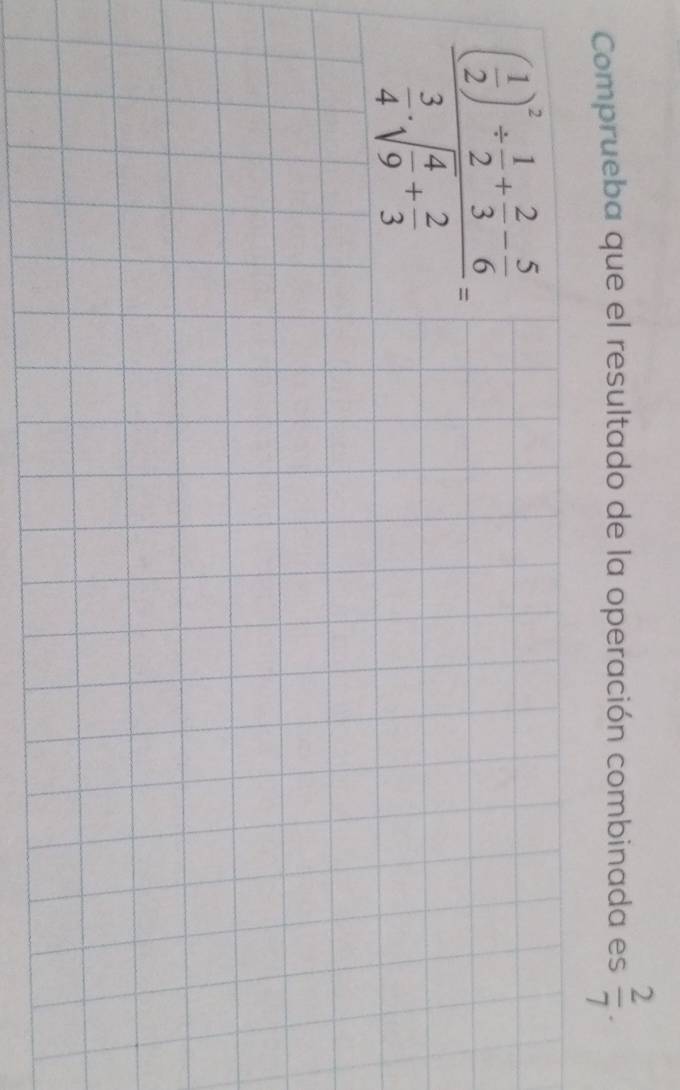 Comprueba que el resultado de la operación combinada es $\frac{2}{7}$.
$\frac{\left(\frac{1}{2}\right)^2 \div \frac{1}{2} + \frac{2}{3} - \frac{5}{6}}{\frac{3}{4} \cdot \sqrt{\frac{4}{9}} + \frac{2}{3}} =$